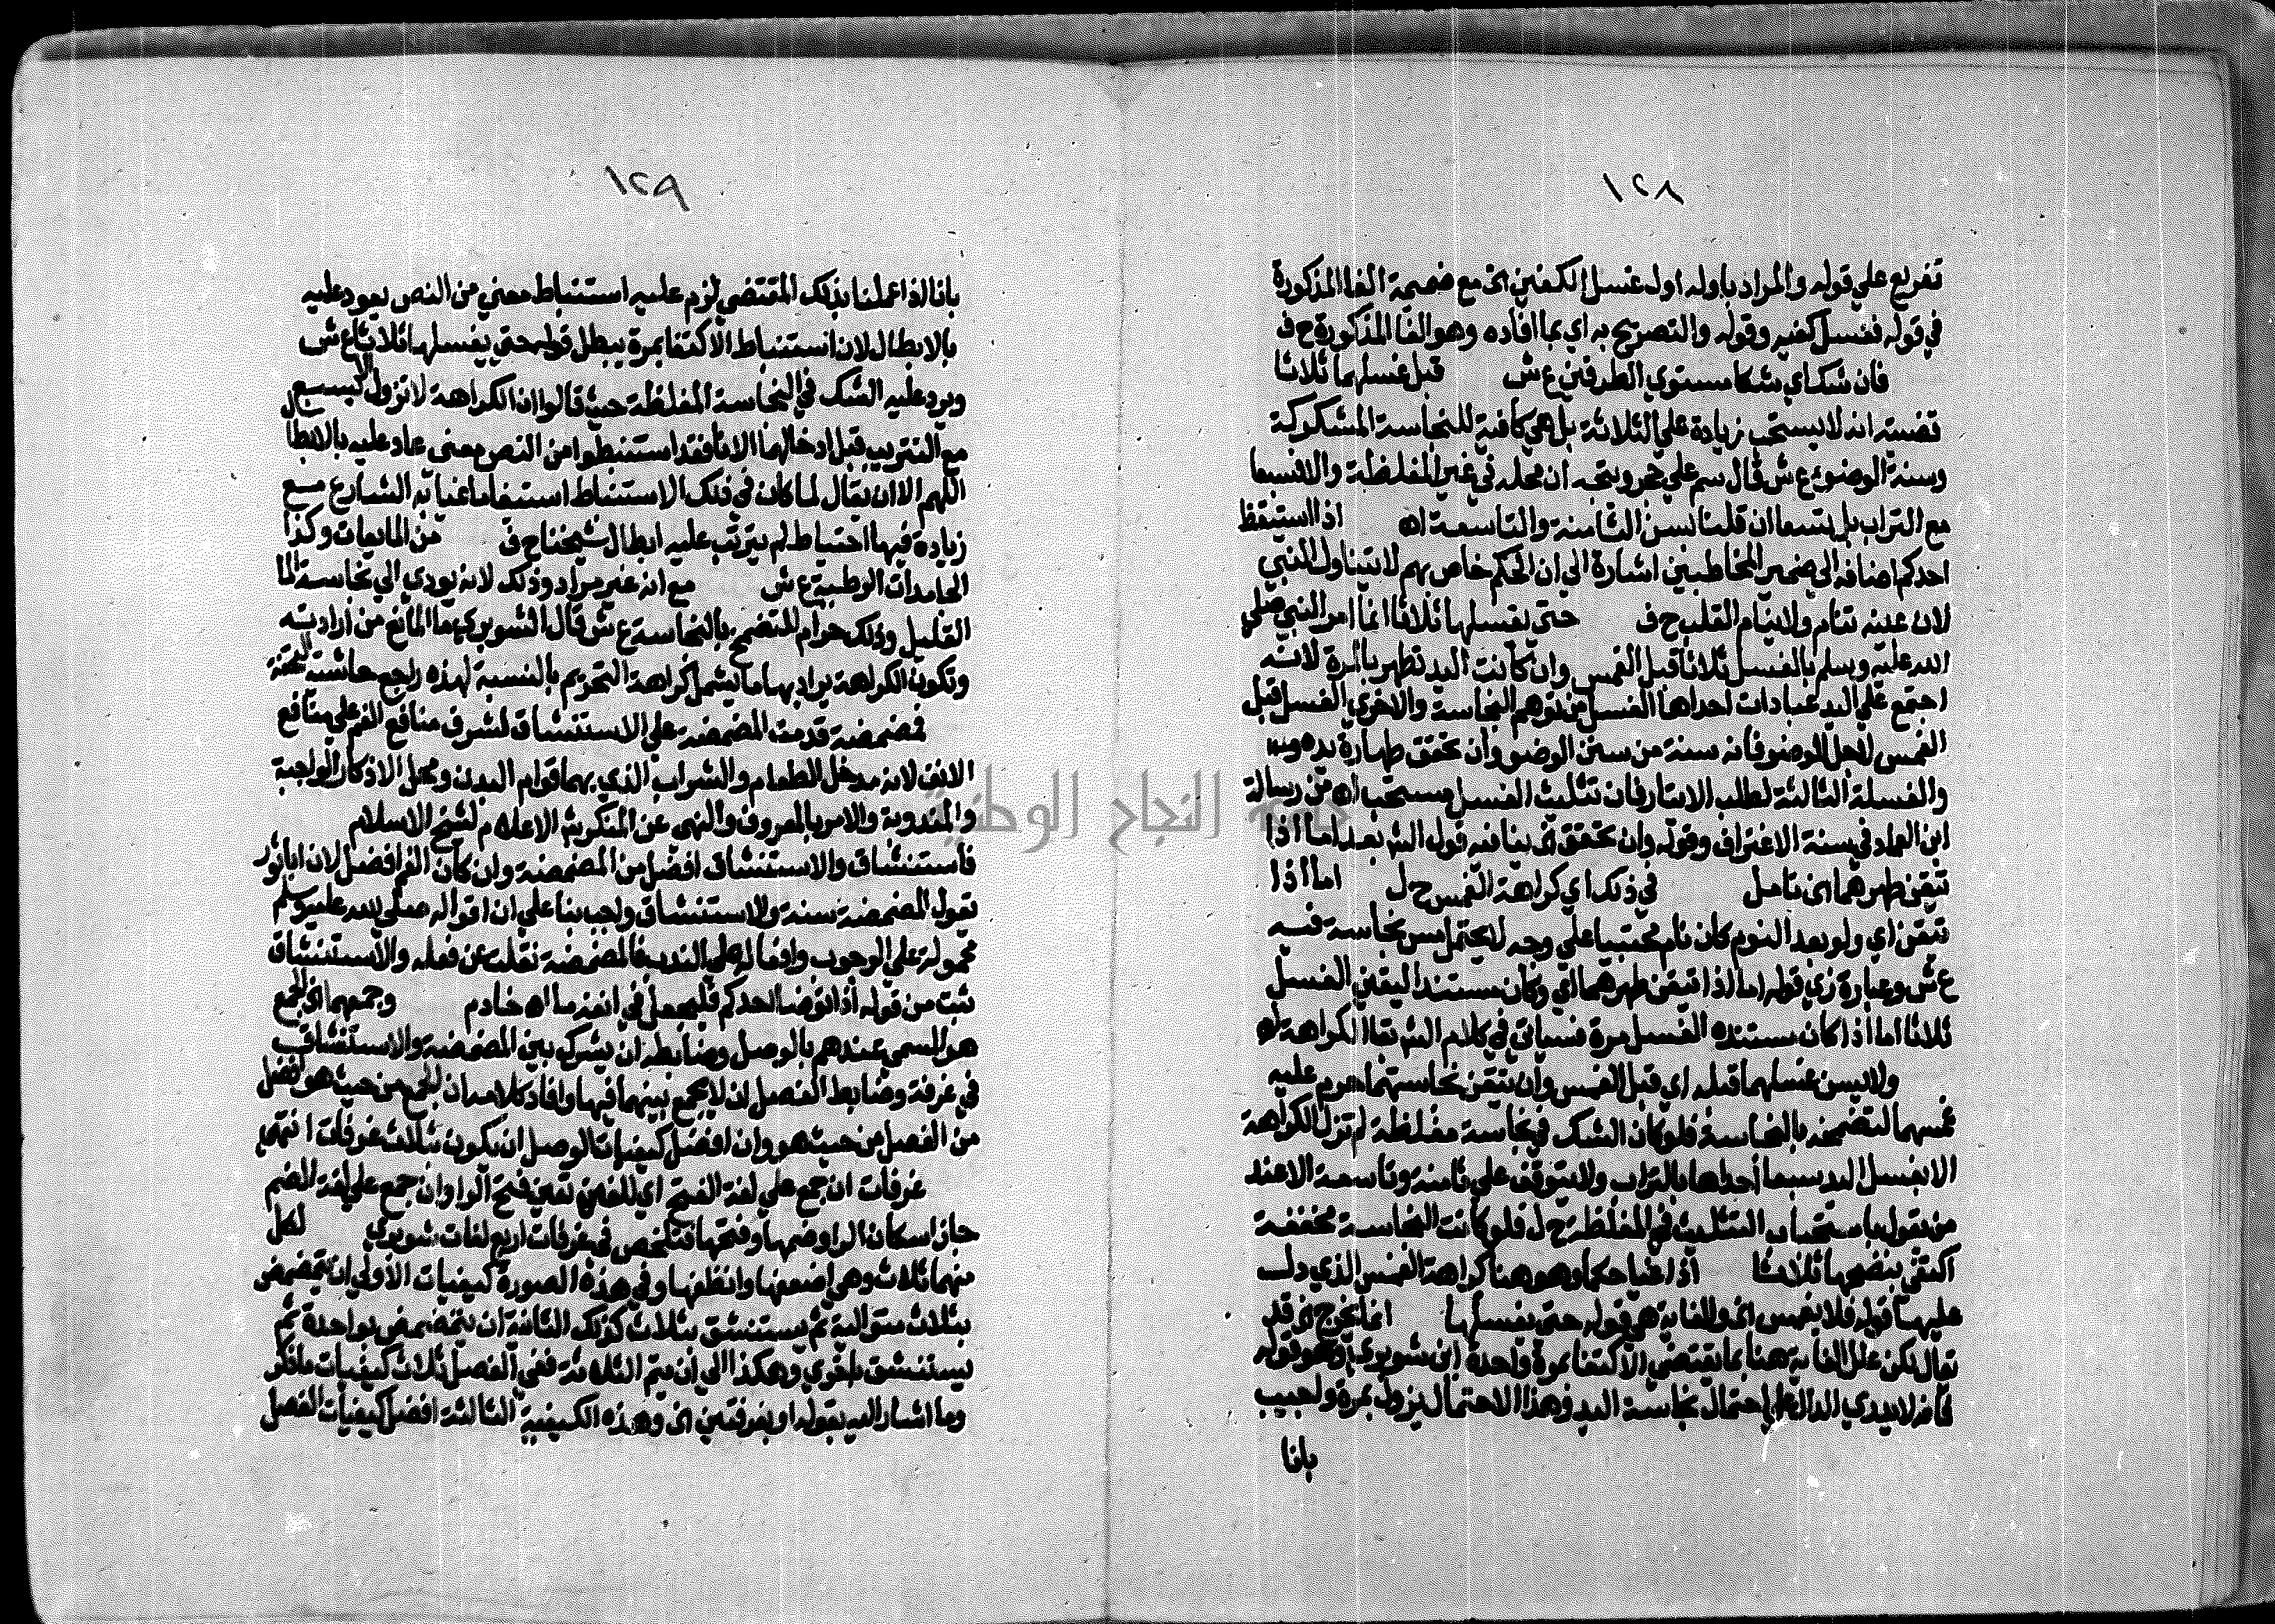 ١٢٨
تفريع على قوله والمراد باوله اول غسل الكفين الخ مع ضميمة الفا المذكورة
في قوله فغسل كفيه وقوله والتصريح به اي بما افاده وهو الفا المذكورة ح ف
فان شك اي شكا مستوي الطرفين ع ش قبل غسلهما ثلاثا
قضيته انه لا يستحب زيادة على الثلاثة بل هي كافية للنجاسة المشكوكة
وسنة الوضوء ع ش قال سم على حجر ويتجه ان محله في غير المغلظة والا فسبعا
مع التراب بل يتسعا ان قلنا بسن الثامنة والتاسعة اه اذا استيقظ
احدكم اضافه الى ضمير المخاطبين اشارة الى ان الحكم خاص بهم لا يتناول النبي
لان عينه تنام ولا ينام القلب ح ف حتى يغسلها ثلاثا انما امر النبي صلى
الله عليه وسلم بالغسل ثلاثا قبل الغمس وان كانت اليد تطهر بالمرة لانه
اجتمع على اليد عبادات احداها الغسل من توهم النجاسة والاخرى الغسل قبل
الغمس لاجل الوضو فانه سنة من سنن الوضو وان تحقق طهارة يده
والغسلة الثالثة لطلب الايتار فان تثليث الغسل مستحب اه من رسالة
ابن العماد في سنة الاغتراف وقوله وان تحقق الخ ينافيه قول الش بعد اما اذا
تيقن طهرهما الخ تامل في ذلك اي كراهة الغمس ح ل اما اذا
تيقن اي ولو بعد النوم كان نام محتبيا على وجه لا يحتمل مس نجاسة فيه
ع ش وعبارة زي قوله اما اذا تيقن طهرهما اي وكان مستند اليقين الغسل
ثلاثا اما اذا كان مستنده الغسل مرة فسياتي في كلام الش بقا الكراهة اه
ولا يسن غسلهما قبله اي قبل الغمس وان تيقن نجاستهما حرم عليه
غمسهما لتضمخه بالنجاسة فلو كان الشك في نجاسة مغلظة لم تزل الكراهة
الا بغسل اليد سبعا احداها بالتراب ولا يتوقف على ثامنة وتاسعة الا عند
من يقول باستحباب التثليث في المغلظة ح ل فلو كانت النجاسة مخففة
اكتفى بنضحها ثلاثا اذا غيا حكما وهو هنا كراهة الغمس الذي دل
عليها قوله فلا يغمس الخ والغاية هي قوله حتى يغسلها انما يخرج الخ قد
يقال لكن علل الغاية هنا بما يقتضي الاكتفا بمرة واحدة ابن شوبري وهو قوله
فانه لا يدري الدال على احتمال نجاسة اليد وهذا الاحتمال يزول بمرة واجيب
بانا
١٢٩
بانا اذا عملنا بذلك المقتضى لزم عليه استنباط معنى من النص يعود عليه
بالابطال لان استنباط الاكتفا بمرة يبطل قوله حتى يغسلها ثلاثا ع ش
ويرد عليه الشك في النجاسة المغلظة حيث قالوا ان الكراهة لا تزول الا بسبع
مع التتريب قبل ادخالها الانا فقد استنبطوا من النص معنى عاد عليه بالابطال
اللهم الا ان يقال لما كان في ذلك الاستنباط استيفا ما غيا به الشارع مع
زيادة فيها احتياط لم يترتب عليه ابطال شيخنا ح ف من المايعات وكذا
الجامدات الرطبة ع ش مع انه غير مراد وذلك لانه يودي الى نجاسة الما
القليل وذلك حرام للتضمخ بالنجاسة ع ش قال الشوبري ما المانع من ارادته
وتكون الكراهة يراد بها ما يشمل كراهة التحريم بالنسبة لهذه راجع حاشية التحفة
فمضمضة قدمت المضمضة على الاستنشاق لشرف منافع الفم على منافع
الانف لانه مدخل الطعام والشراب الذي بهما قوام البدن ومحل الاذكار الواجبة
والمندوبة والامر بالمعروف والنهي عن المنكر الاعلام لشيخ الاسلام
فاستنشاق والاستنشاق افضل من المضمضة وان كان الفم افضل لان ابا ثور
يقول المضمضة سنة والاستنشاق واجب بنا على ان اقواله صلى الله عليه وسلم
محمولة على الوجوب وافعاله على الندب فالمضمضة نقلت عن فعله والاستنشاق
ثبت من قوله اذا توضا احدكم فليجعل في انفه ما اه خادم وجمعهما الخ الجمع
هو المسمى عندهم بالوصل وضابطه ان يشرك بين المضمضة والاستنشاق
في غرفة وضابط الفصل ان لا يجمع بينهما فيها وافاد كلامه ان الجمع من حيث هو افضل
من الفصل من حيث هو وان افضل كيفيات الوصل ان يكون بثلاث غرفات انتهى
غرفات ان جمع على لغة الفتح اي للغين تعين فتح الرا وان جمع على لغة الضم
جاز اسكان الرا وضمها وفتحها فتلخص في غرفات اربع لغات شوبري لكل
منهما ثلاث وهي اضعفها وانظفها وفي هذه الصورة كيفيات الاولى ان يتمضمض
بثلاث متوالية ثم يستنشق بثلاث كذلك الثانية ان يتمضمض بواحدة ثم
يستنشق باخرى وهكذا الى ان يتم الثلاثة ففي الفصل ثلاث كيفيات ما ذكر
وما اشار اليه بقوله او بغرفتين الخ وهذه الكيفية الثالثة افضل كيفيات الفصل